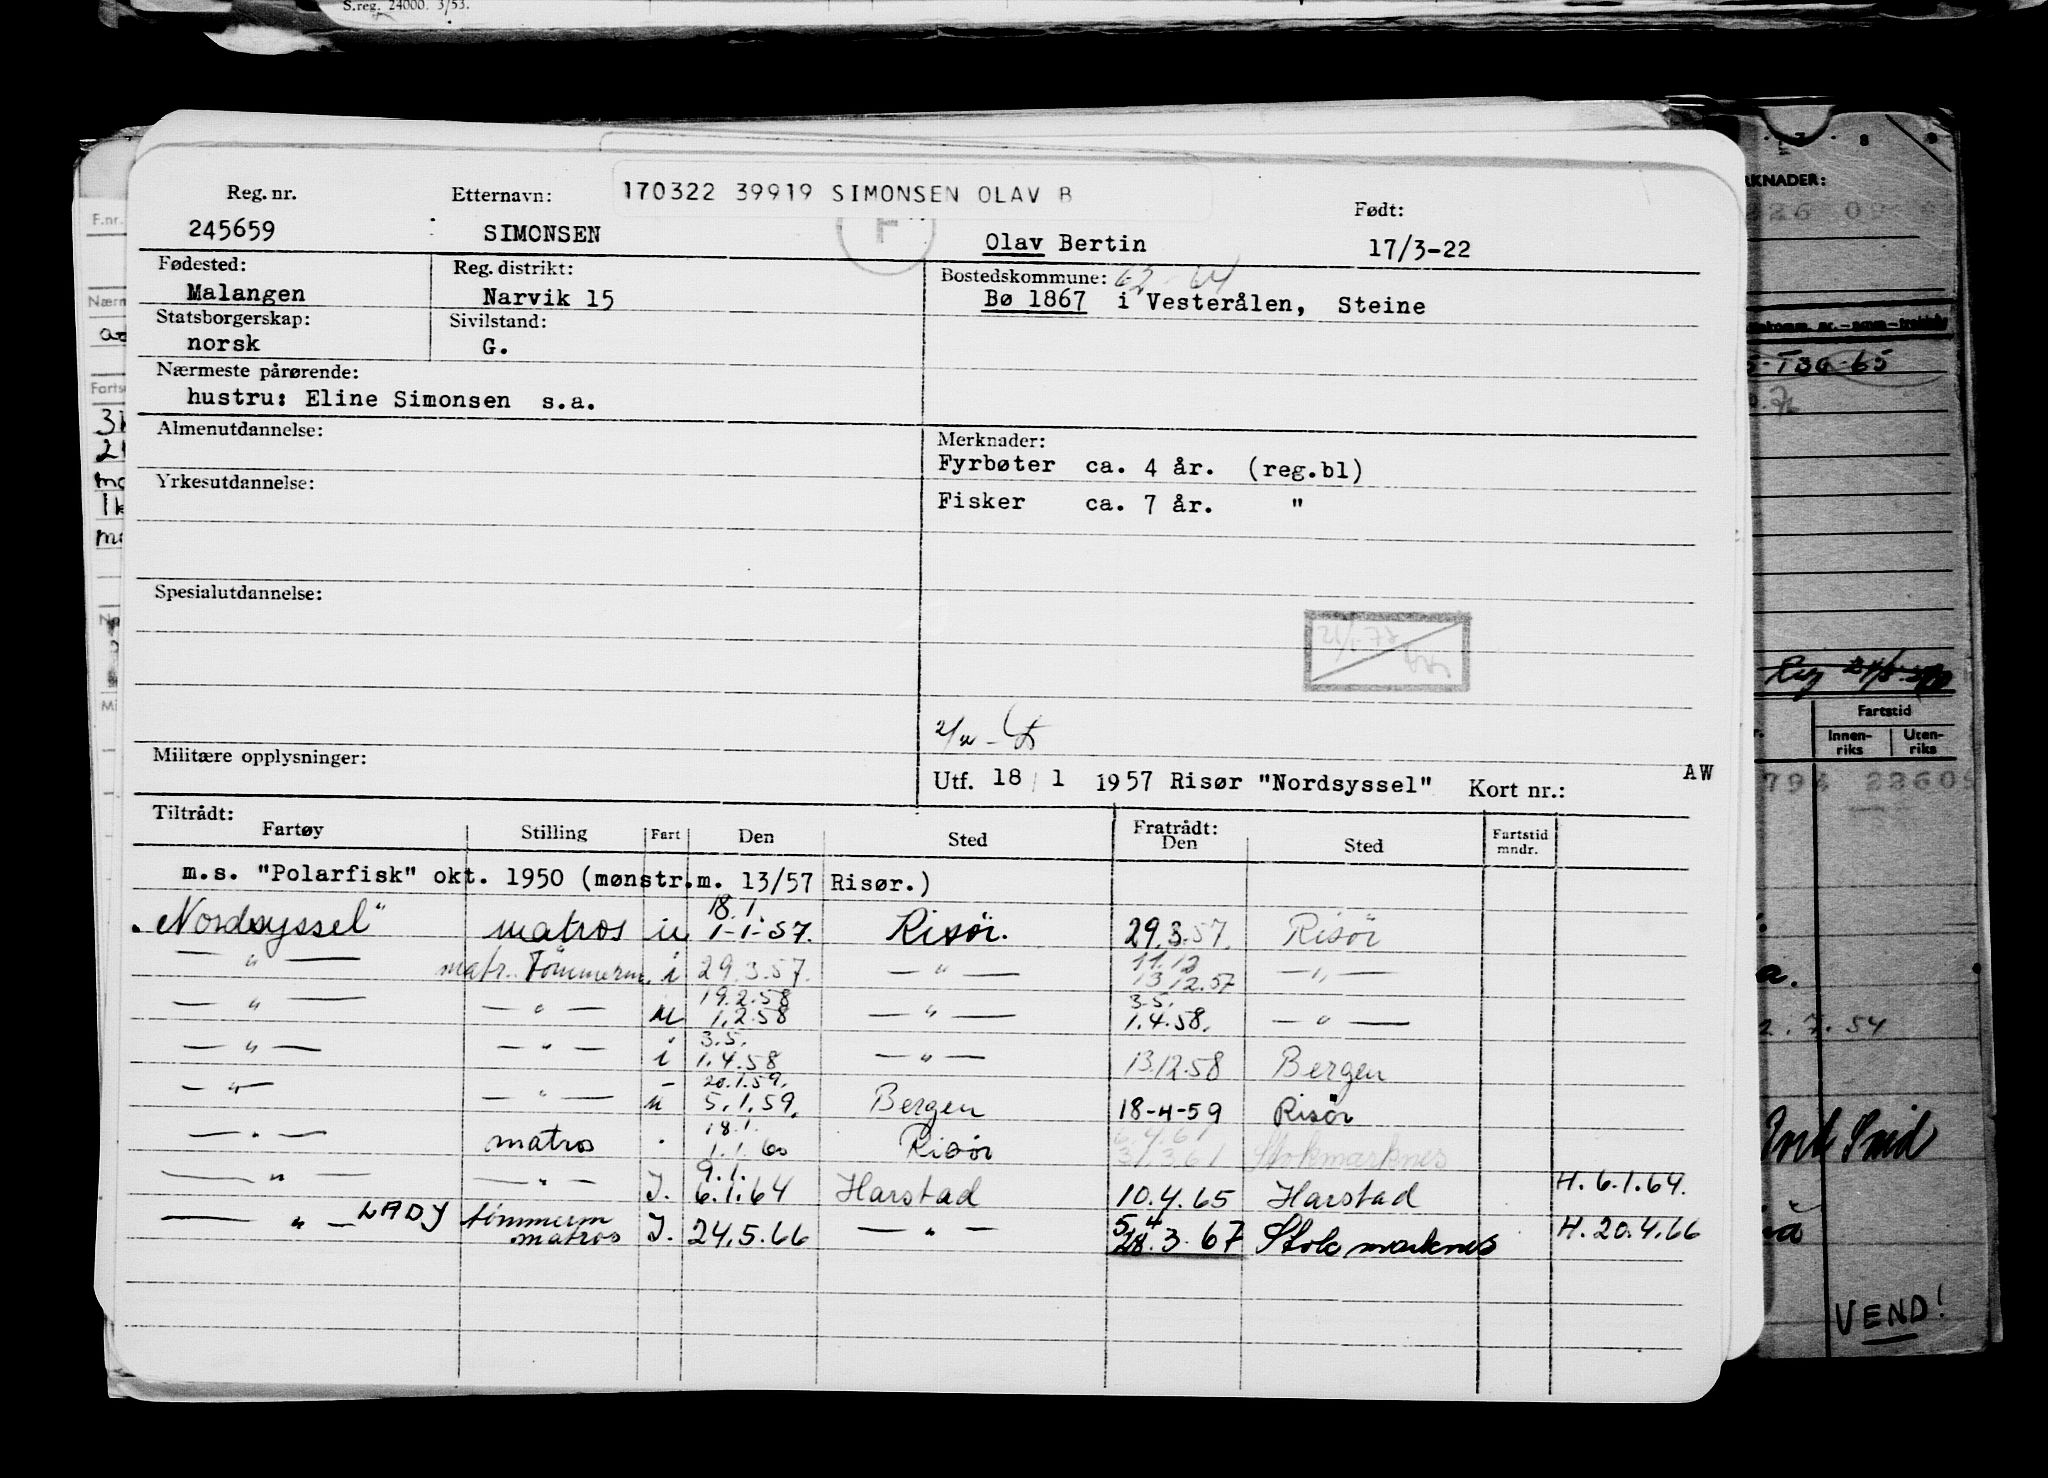 S.reg. 24000. 3/53.
170322 39919 SIMONSEN OLAV B
Reg. nr. Etternavn: Født:
245659 SIMONSEN Olav Bertin 17/3-22
F
Fødested: Reg. distrikt: Bostedskommune: 62-64
Malangen Narvik 15 Bø 1867 i Vesterålen, Steine
Statsborgerskap: Sivilstand:
norsk G.
Nærmeste pårørende:
hustru: Eline Simonsen s.a.
Almenutdannelse: Merknader:
Fyrbøter ca. 4 år. (reg.bl)
Yrkesutdannelse:
Fisker ca. 7 år. "
Spesialutdannelse:
Militære opplysninger:
Utf. 18/1 1957 Risør "Nordsyssel" Kort nr.: AW
Tiltrådt: Fratrådt:
Fartøy Stilling Fart Den Sted Den Sted Fartstid mndr.
m.s. "Polarfisk" okt. 1950 (mønstr.m. 13/57 Risør.)
18.1.
"Nordsyssel" matros u 1-1-57. Risör. 29.3.57. Risör
11.12
— " — matr. Tömmerm. i 29.3.57. — " — 13.12.57 — " —
19.2.58 3.5.
— " — — " — u 1.2.58 — " — 1.4.58. — " —
3.5.
— " — — " — i 1.4.58 — " — 13.12.58 Bergen
20.1.59.
— " — — " — u 5.1.59. Bergen 18-4-59 Risör
18.1. 6.4.61
— " — matros . 1.1.60 Risör 31.3.61 Stokmarknes
9.1.
— " — — " — I. 6.1.64 Harstad 10.4.65 Harstad H. 6.1.64.
— " — LADY tömmerm 5/4
matros I. 24.5.66 — " — 28.3.67 Stokmarknes H. 20.4.66
F.nr.
MERKNADER:
Fartstid
Innen-riks Uten-riks
2.7.54
VEND!